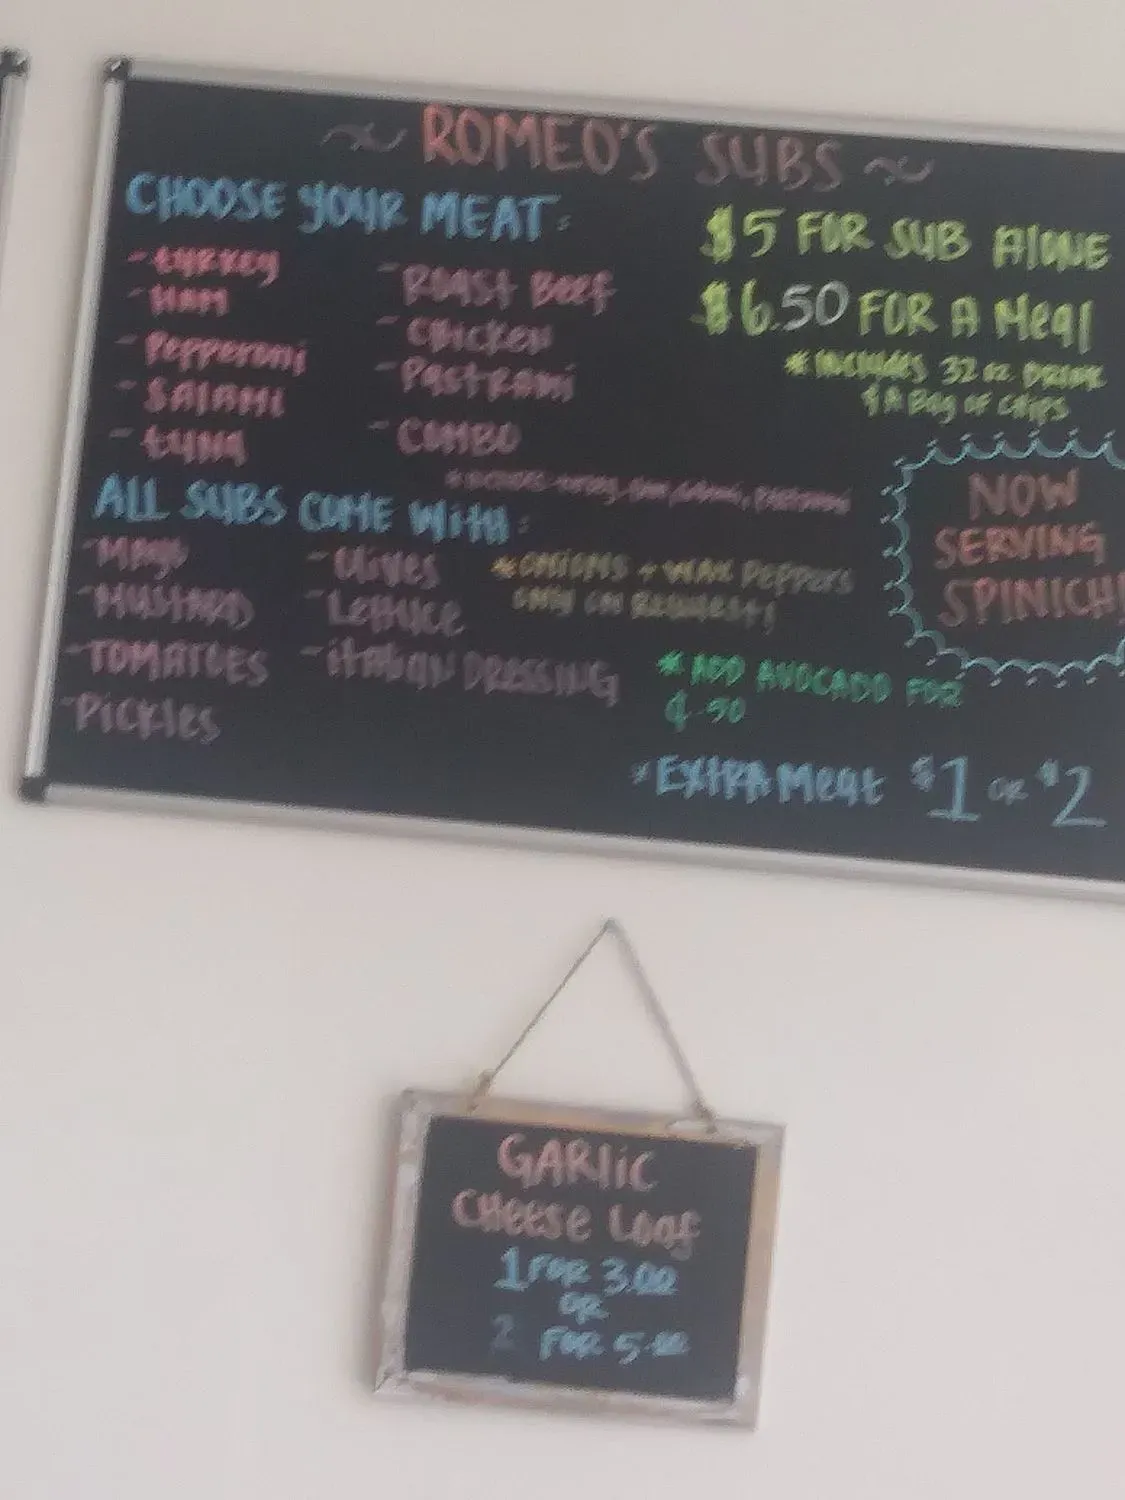 ~ ROMEO'S SUBS ~
CHOOSE YOUR MEAT:
- turkey
- HAM
- Pepperoni
- SALAMI
- tUNA
- ROAST Beef
- CHICKEN
- PASTRAMI
- COMBO
$5 FOR SUB AlONE
$6.50 FOR A Meal
* INCLUDES 32 oz DRINK
& A Bag OF CHIPS
NOW
SERVING
SPINICH!
ALL SUBS COME WitH:
- MAYO
- MUSTARD
- TOMATOES
- PICKLES
- Olives
- Lettuce
- itAlian DRESSING
* ONIONS + WAX PEPPERS
ONLY ON REQUEST!
* ADD AVOCADO FOR
$.50
* EXtRA Meat $1 OR $2
GARlic
CHeese loaf
1 FOR 3.00
OR
2 FOR 5.00